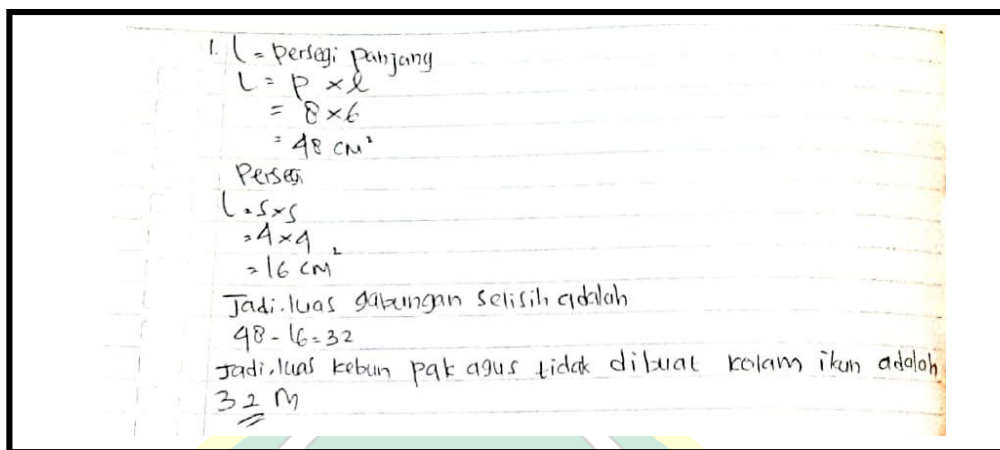 1. L = persegi panjang
L = p x l
= 8 x 6
= 48 cm²
Persegi
L = s x s
= 4 x 4
= 16 cm²
Jadi. luas gabungan selisih adalah
48 - 16 = 32
Jadi. luas kebun pak agus tidak dibuat kolam ikan adalah
32 M